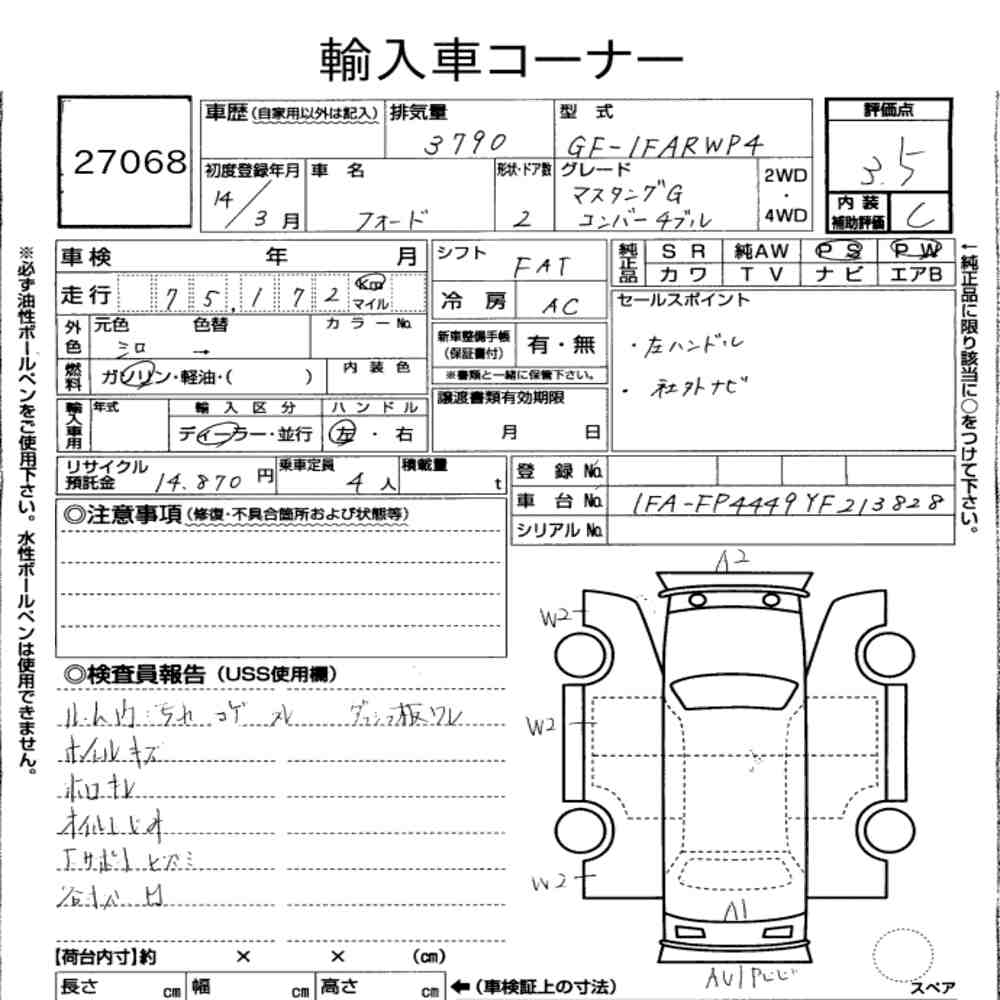 輸入車コーナー
27068
車歴(自家用以外は記入) 排気量 3790 型式 GF-1FARWP4
初度登録年月 14/3月 車名 フォード 形状・ドア数 2 グレード マスタングG コンバーチブル 2WD・4WD
評価点 3.5
内装補助評価 C
※必ず油性ボールペンをご使用下さい。水性ボールペンは使用できません。
車検 年 月
走行 75,172 Km マイル
外色 元色 シロ 色替 → カラーNo.
燃料 ガソリン・軽油・( ) 内装色
輸入車用 年式 輸入区分 ディーラー・並行 ハンドル 左・右
シフト FAT
冷房 AC
新車整備手帳(保証書付) 有・無
※書類と一緒に保管下さい。
譲渡書類有効期限
月 日
純正品 SR 純AW PS PW
カワ TV ナビ エアB
セールスポイント
・左ハンドル
・社外ナビ
←純正品に限り該当に○をつけて下さい。
リサイクル預託金 14.870円 乗車定員 4人 積載量 t
登録No.
車台No. 1FA-FP4449YF213828
シリアルNo.
◎注意事項(修復・不具合箇所および状態等)
◎検査員報告(USS使用欄)
ルーム内 汚れ コゲ スレ ダッシュ板ワレ
ホイルキズ
ホロキレ
オイルしじみ
Fサポートヒズミ
A2
W2
W2
W2
A1
スペア
【荷台内寸】約 × × (cm)
長さ cm 幅 cm 高さ cm ←(車検証上の寸法)